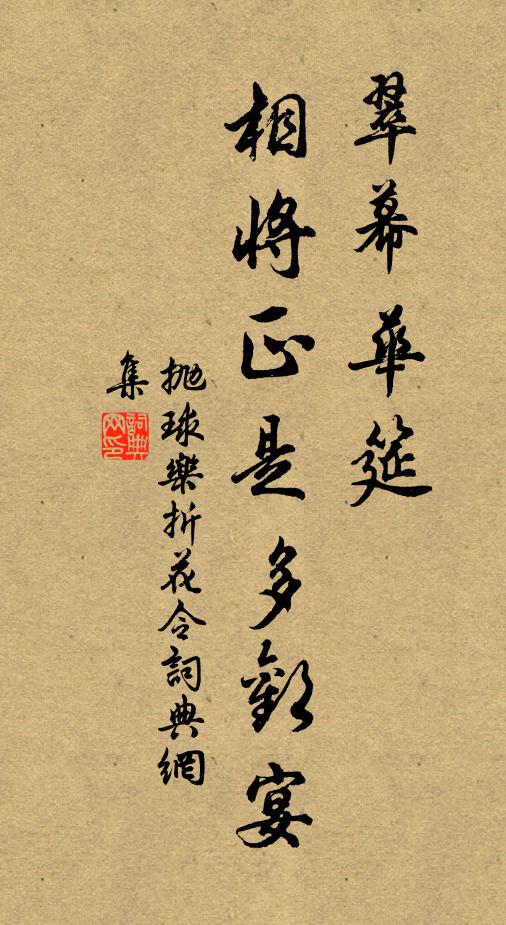 翠幕華筵
相將正是多歡宴
拋球樂折花令詞典網
集
詞典網印